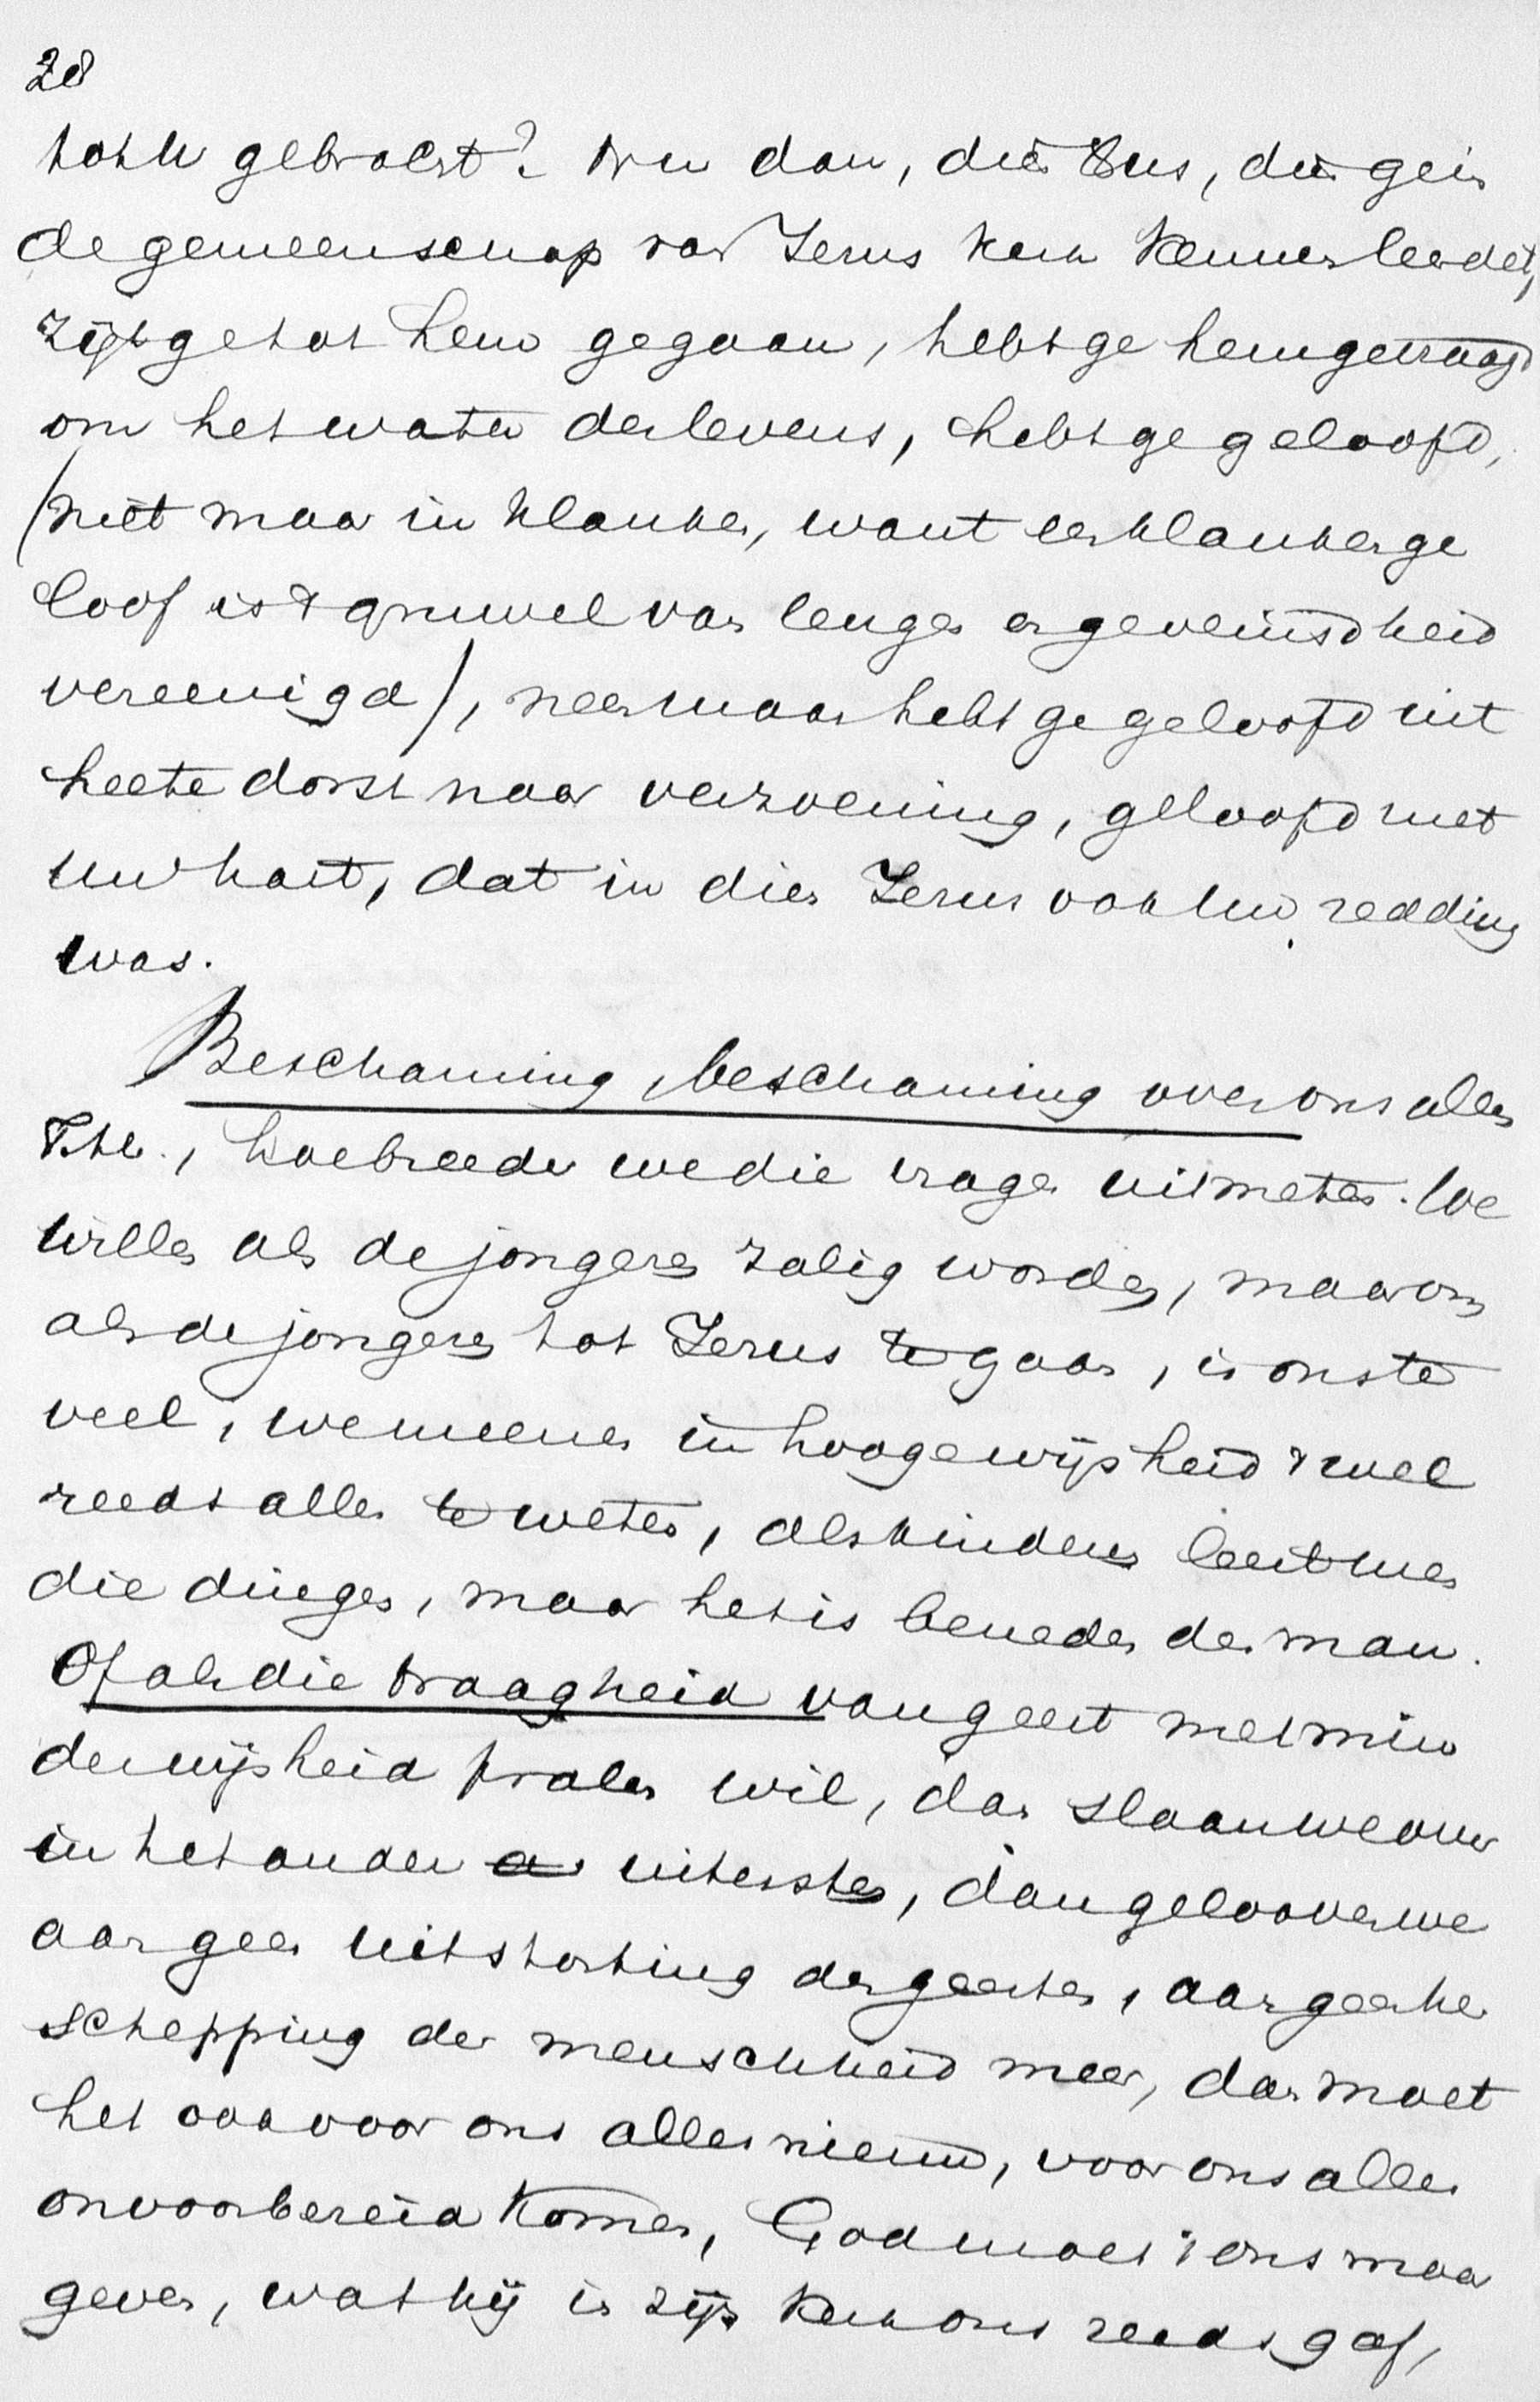 28
tot U gebracht? Nu dan, dien Zus, dien ge in
de gemeenschap van Jezus kerk kennen leerdet,
zijt ge tot hem gegaan, hebt ge hem gevraagd
om het water des levens, hebt ge geloofd,
(niet maar in klanken, want een klanken ge
loof is 't gruwel van leugen en geveinsdheid
vereenigd), neen maar hebt ge geloofd uit
heete dorst naar verzoening, geloofd met
uw hart, dat in dien Jezus ook uw redding
was.
Beschaming, beschaming over ons allen
hoe breeder we die vragen uitmeten. We
willen als de jongeren zalig worden, maar om
als de jongeren tot Jezus te gaan, is ons te
veel, we meenen in hooge wijsheid 't wel
reeds alles te weten, als kinderen leert men
die dingen, maar het is beneden den man.
Of als die traagheid van geest met min
der wijsheid pralen wil, dan slaan we over
in het ander uitersten, dan gelooven we
aan geen uitstorting des geestes, aan geen her
schepping der menschheid meer, dan moet
het ook voor ons alles nieuw, voor ons alles
onvoorbereid komen, God moet 't ons maar
geven, wat hij in zijn kerk ons reeds gaf,